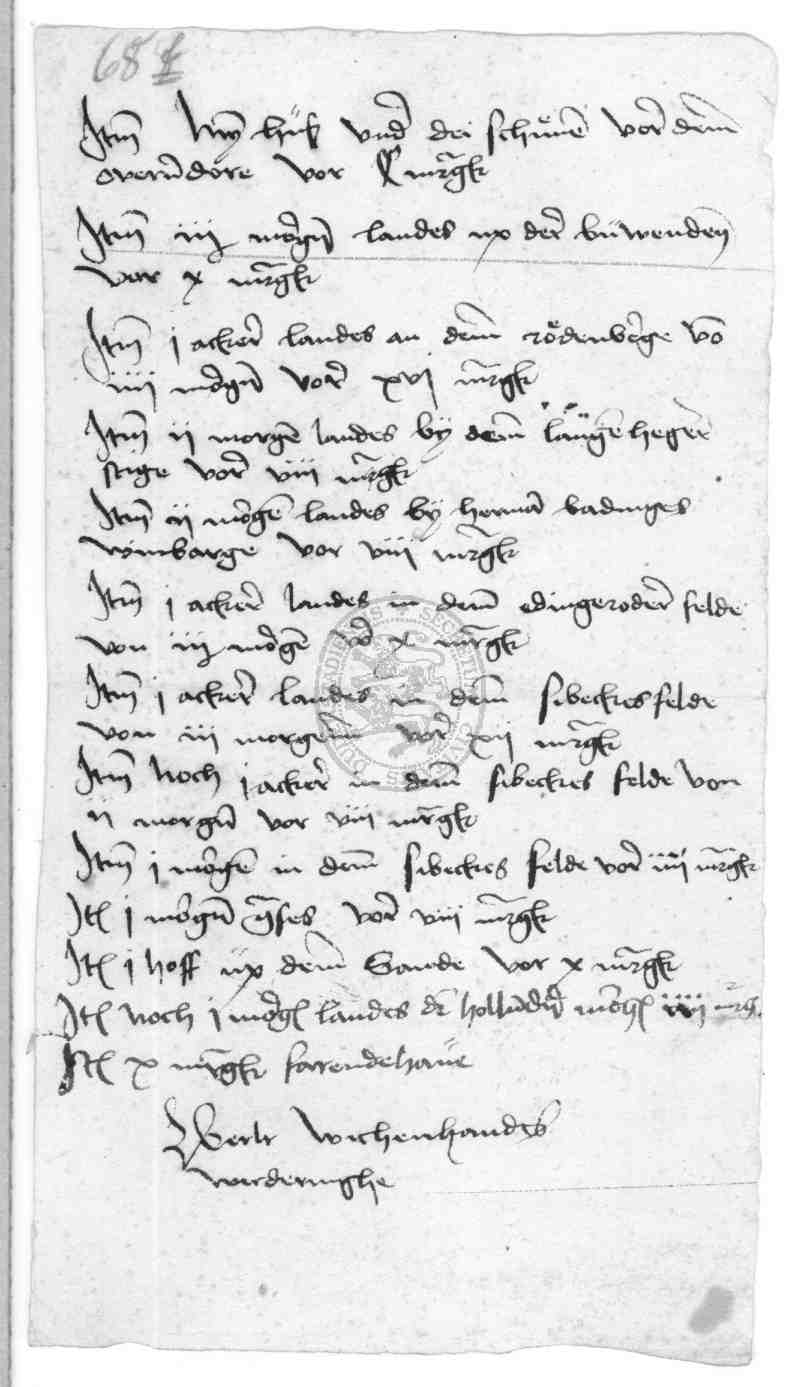 68
Itm̄ myn huß vnd dei schuͤne vor dem
overndore vor C mrgk
Itm̄ iij morgn̄ landes up der buwenden
vor x mrgk
Itm̄ j acker landes an dem rodenberge vō
iiij morgn̄ vor xvj mrgk
Itm̄ ij morgē landes by dem langē heger
stige vor viij mrgk
Itm̄ ij morgē landes by hermā badinges
winbarge vor viij mrgk
Itm̄ j acker landes in dem edingeroder felde
von iij morgē vor x mrgk
Itm̄ j acker landes in dem sibeckes felde
von iij morgenn vor xij mrgk
Itm̄ noch j acker in dem sibeckes felde von
ij morgn̄ vor viij mrgk
Itm̄ j morgē in dem sibeckes felde vor iiij mrgk
Itē j morgn̄ vor viij mrgk
Itē j hoff up dem Sande vor x mrgk
Itē noch j morgē landes iiij mrg
Itē x mrgk farendehaue
wichenhandes
wederinghe